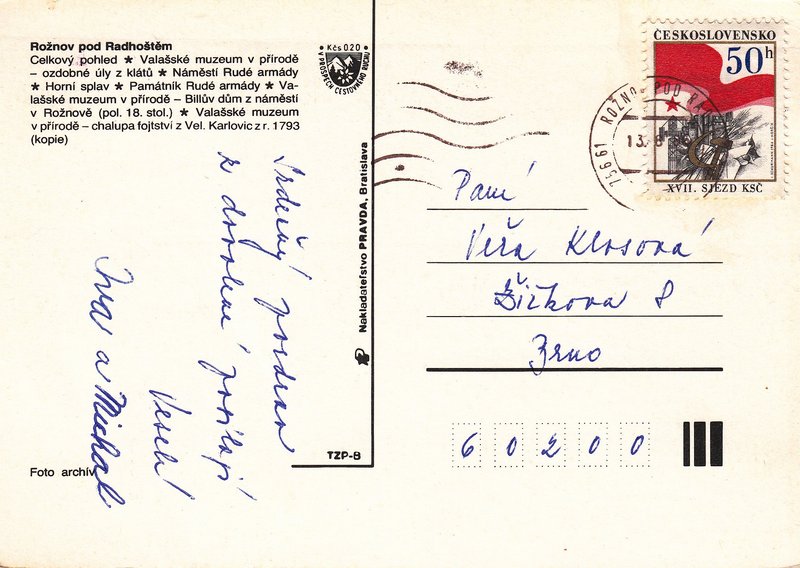 Rožnov pod Radhoštěm
Celkový pohled ★ Valašské muzeum v přírodě
– ozdobné úly z klátů ★ Náměstí Rudé armády
★ Horní splav ★ Památník Rudé armády ★ Va-
lašské muzeum v přírodě – Billův dům z náměstí
v Rožnově (pol. 18. stol.) ★ Valašské muzeum
v přírodě – chalupa fojtství z Vel. Karlovic z r. 1793
(kopie)
Kčs 0,20
V PROSPĚCH CESTOVNÍHO RUCHU
Srdečný pozdrav
z dovolené posílají
Veselí
Iva a Michal
Foto archív
Nakladatelství PRAVDA, Bratislava
TZP-8
ČESKOSLOVENSKO
50h
XVII. SJEZD KSČ
756 61 ROŽNOV POD RA
13.8
Paní
Věra Klosová
Žižkova 8
Brno
60200